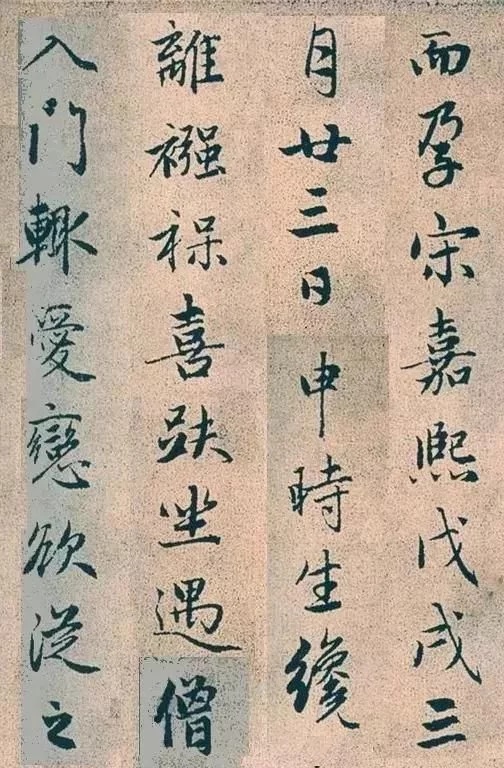 而孕宋嘉熙戊戌三
月廿三日申時生纔
離襁褓喜趺坐遇僧
入門輙愛戀欲従之